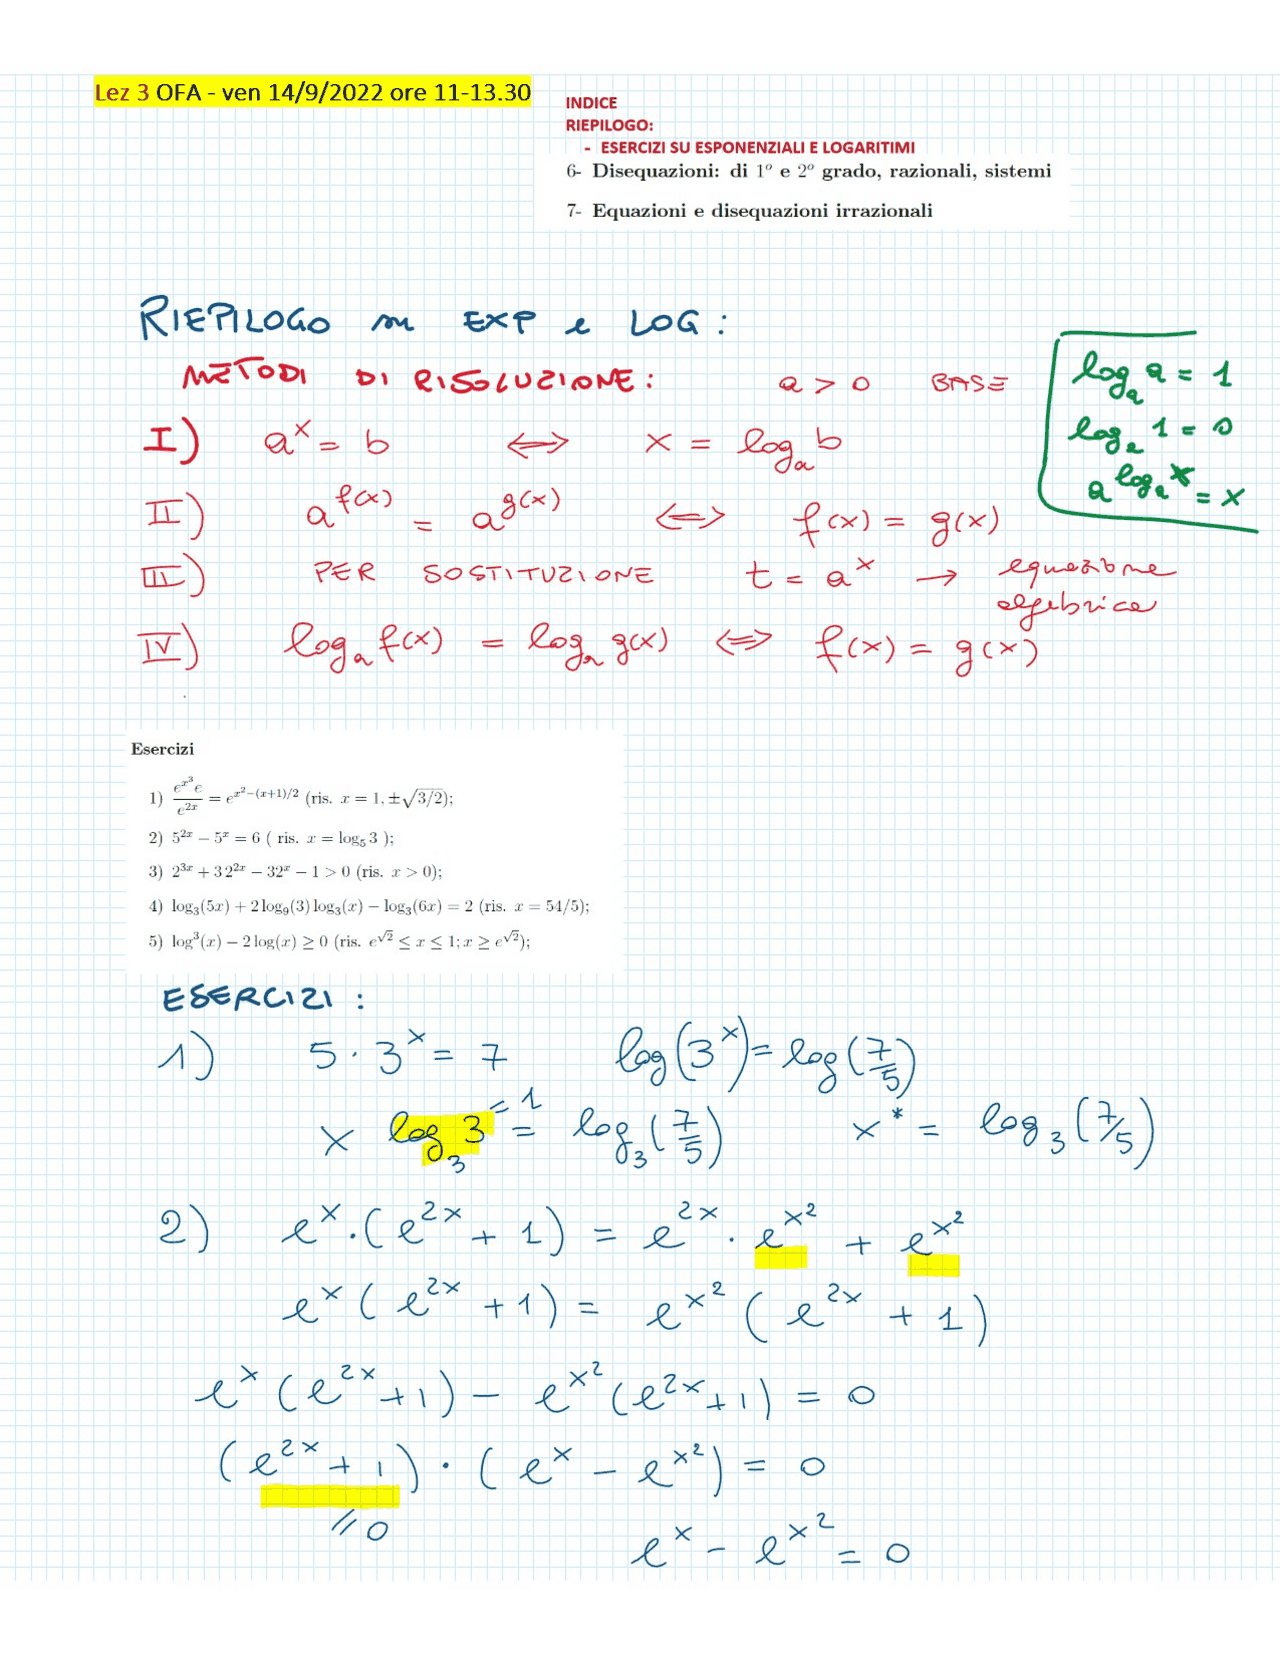 Lez 3 OFA - ven 14/9/2022 ore 11-13.30
INDICE
RIEPILOGO:
- ESERCIZI SU ESPONENZIALI E LOGARITIMI
6- Disequazioni: di 1º e 2º grado, razionali, sistemi
7- Equazioni e disequazioni irrazionali
RIEPILOGO su EXP e LOG :
METODI DI RISOLUZIONE : a > 0 BASE
I) a^x = b ⟺ x = log_a b
II) a^{f(x)} = a^{g(x)} ⟺ f(x) = g(x)
III) PER SOSTITUZIONE t = a^x → equazione algebrica
IV) log_a f(x) = log_a g(x) ⟺ f(x) = g(x)
log_a a = 1
log_a 1 = 0
a^{log_a x} = x
Esercizi
1) \frac{e^{x^3} e}{e^{2x}} = e^{x^2-(x+1)/2} (ris. x = 1, ±√(3/2));
2) 5^{2x} − 5^x = 6 ( ris. x = log_5 3 );
3) 2^{3x} + 3 2^{2x} − 32^x − 1 > 0 (ris. x > 0);
4) log_3(5x) + 2 log_9(3) log_3(x) − log_3(6x) = 2 (ris. x = 54/5);
5) log^3(x) − 2 log(x) ≥ 0 (ris. e^{√2} ≤ x ≤ 1; x ≥ e^{√2});
ESERCIZI :
1) 5 · 3^x = 7 log(3^x) = log(7/5)
x log_3 3 = log_3(7/5) x* = log_3(7/5)
= 1
2) e^x · (e^{2x} + 1) = e^{2x} · e^{x^2} + e^{x^2}
e^x (e^{2x} + 1) = e^{x^2} (e^{2x} + 1)
e^x (e^{2x} + 1) − e^{x^2} (e^{2x} + 1) = 0
(e^{2x} + 1) · (e^x − e^{x^2}) = 0
≠ 0
e^x − e^{x^2} = 0